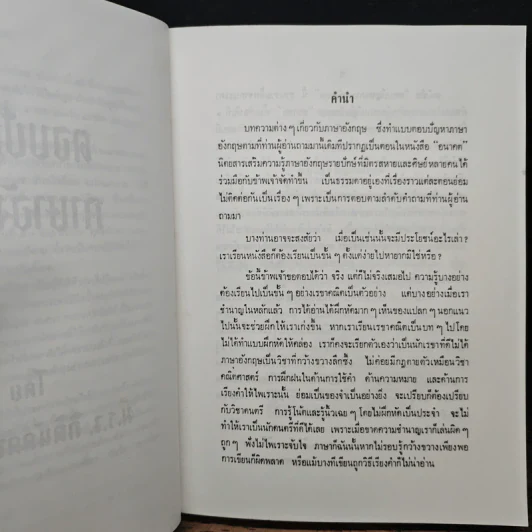 คำนำ
บทความต่าง ๆ เกี่ยวกับภาษาอังกฤษ ซึ่งทำแบบตอบปัญหาภาษา
อังกฤษตามที่ท่านผู้อ่านถามมานี้เดิมทีปรากฏเป็นตอนในหนังสือ "อนาคต"
นิตยสารเสริมความรู้ภาษาอังกฤษรายปักษ์ที่มิตรสหายและศิษย์หลายคนได้
ร่วมมือกับข้าพเจ้าจัดทำขึ้น เป็นธรรมดาอยู่เองที่เรื่องราวแต่ละตอนย่อม
ไม่ติดต่อกันเป็นเรื่อง ๆ เพราะเป็นการตอบตามลำดับคำถามที่ท่านผู้อ่าน
ถามมา
บางท่านอาจจะสงสัยว่า เมื่อเป็นเช่นนั้นจะมีประโยชน์อะไรเล่า ?
เราเรียนหนังสือก็ต้องเรียนเป็นขั้น ๆ ตั้งแต่ง่ายไปหายากมิใช่หรือ ?
ข้อนี้ข้าพเจ้าขอตอบได้ว่า จริง แต่ก็ไม่จริงเสมอไป ความรู้บางอย่าง
ต้องเรียนไปเป็นขั้น ๆ อย่างเรขาคณิตเป็นตัวอย่าง แต่บางอย่างเมื่อเรา
ชำนาญในหลักแล้ว การได้อ่านได้ฝึกหัดมาก ๆ เห็นของแปลก ๆ นอกแนว
ไปนั้นจะช่วยฝึกให้เราเก่งขึ้น หากเราเรียนเรขาคณิตเป็นบท ๆ ไปโดย
ไม่ได้ทำแบบฝึกหัดให้คล่อง เราก็คงจะเรียกตัวเองว่าเป็นนักเรขาที่ดีไม่ได้
ภาษาอังกฤษเป็นวิชาที่กว้างขวางลึกซึ้ง ไม่ค่อยมีกฎตายตัวเหมือนวิชา
คณิตศาสตร์ การฝึกฝนในด้านการใช้คำ ด้านความหมาย และด้านการ
เรียงคำให้ไพเราะนั้น ย่อมเป็นของจำเป็นอย่างยิ่ง จะเปรียบก็ต้องเปรียบ
กับวิชาดนตรี การรู้โน้ตและรู้นิ้วเฉย ๆ โดยไม่ฝึกหัดเป็นประจำ จะไม่
ทำให้เราเป็นนักดนตรีที่ดีได้เลย เพราะเมื่อขาดความชำนาญเราก็เล่นผิด ๆ
ถูก ๆ ฟังไม่ไพเราะจับใจ ภาษาก็ฉันนั้นหากไม่รอบรู้กว้างขวางเพียงพอ
การเขียนก็ผิดพลาด หรือแม้บางทีเขียนถูกวิธีเรียงคำก็ไม่น่าอ่าน